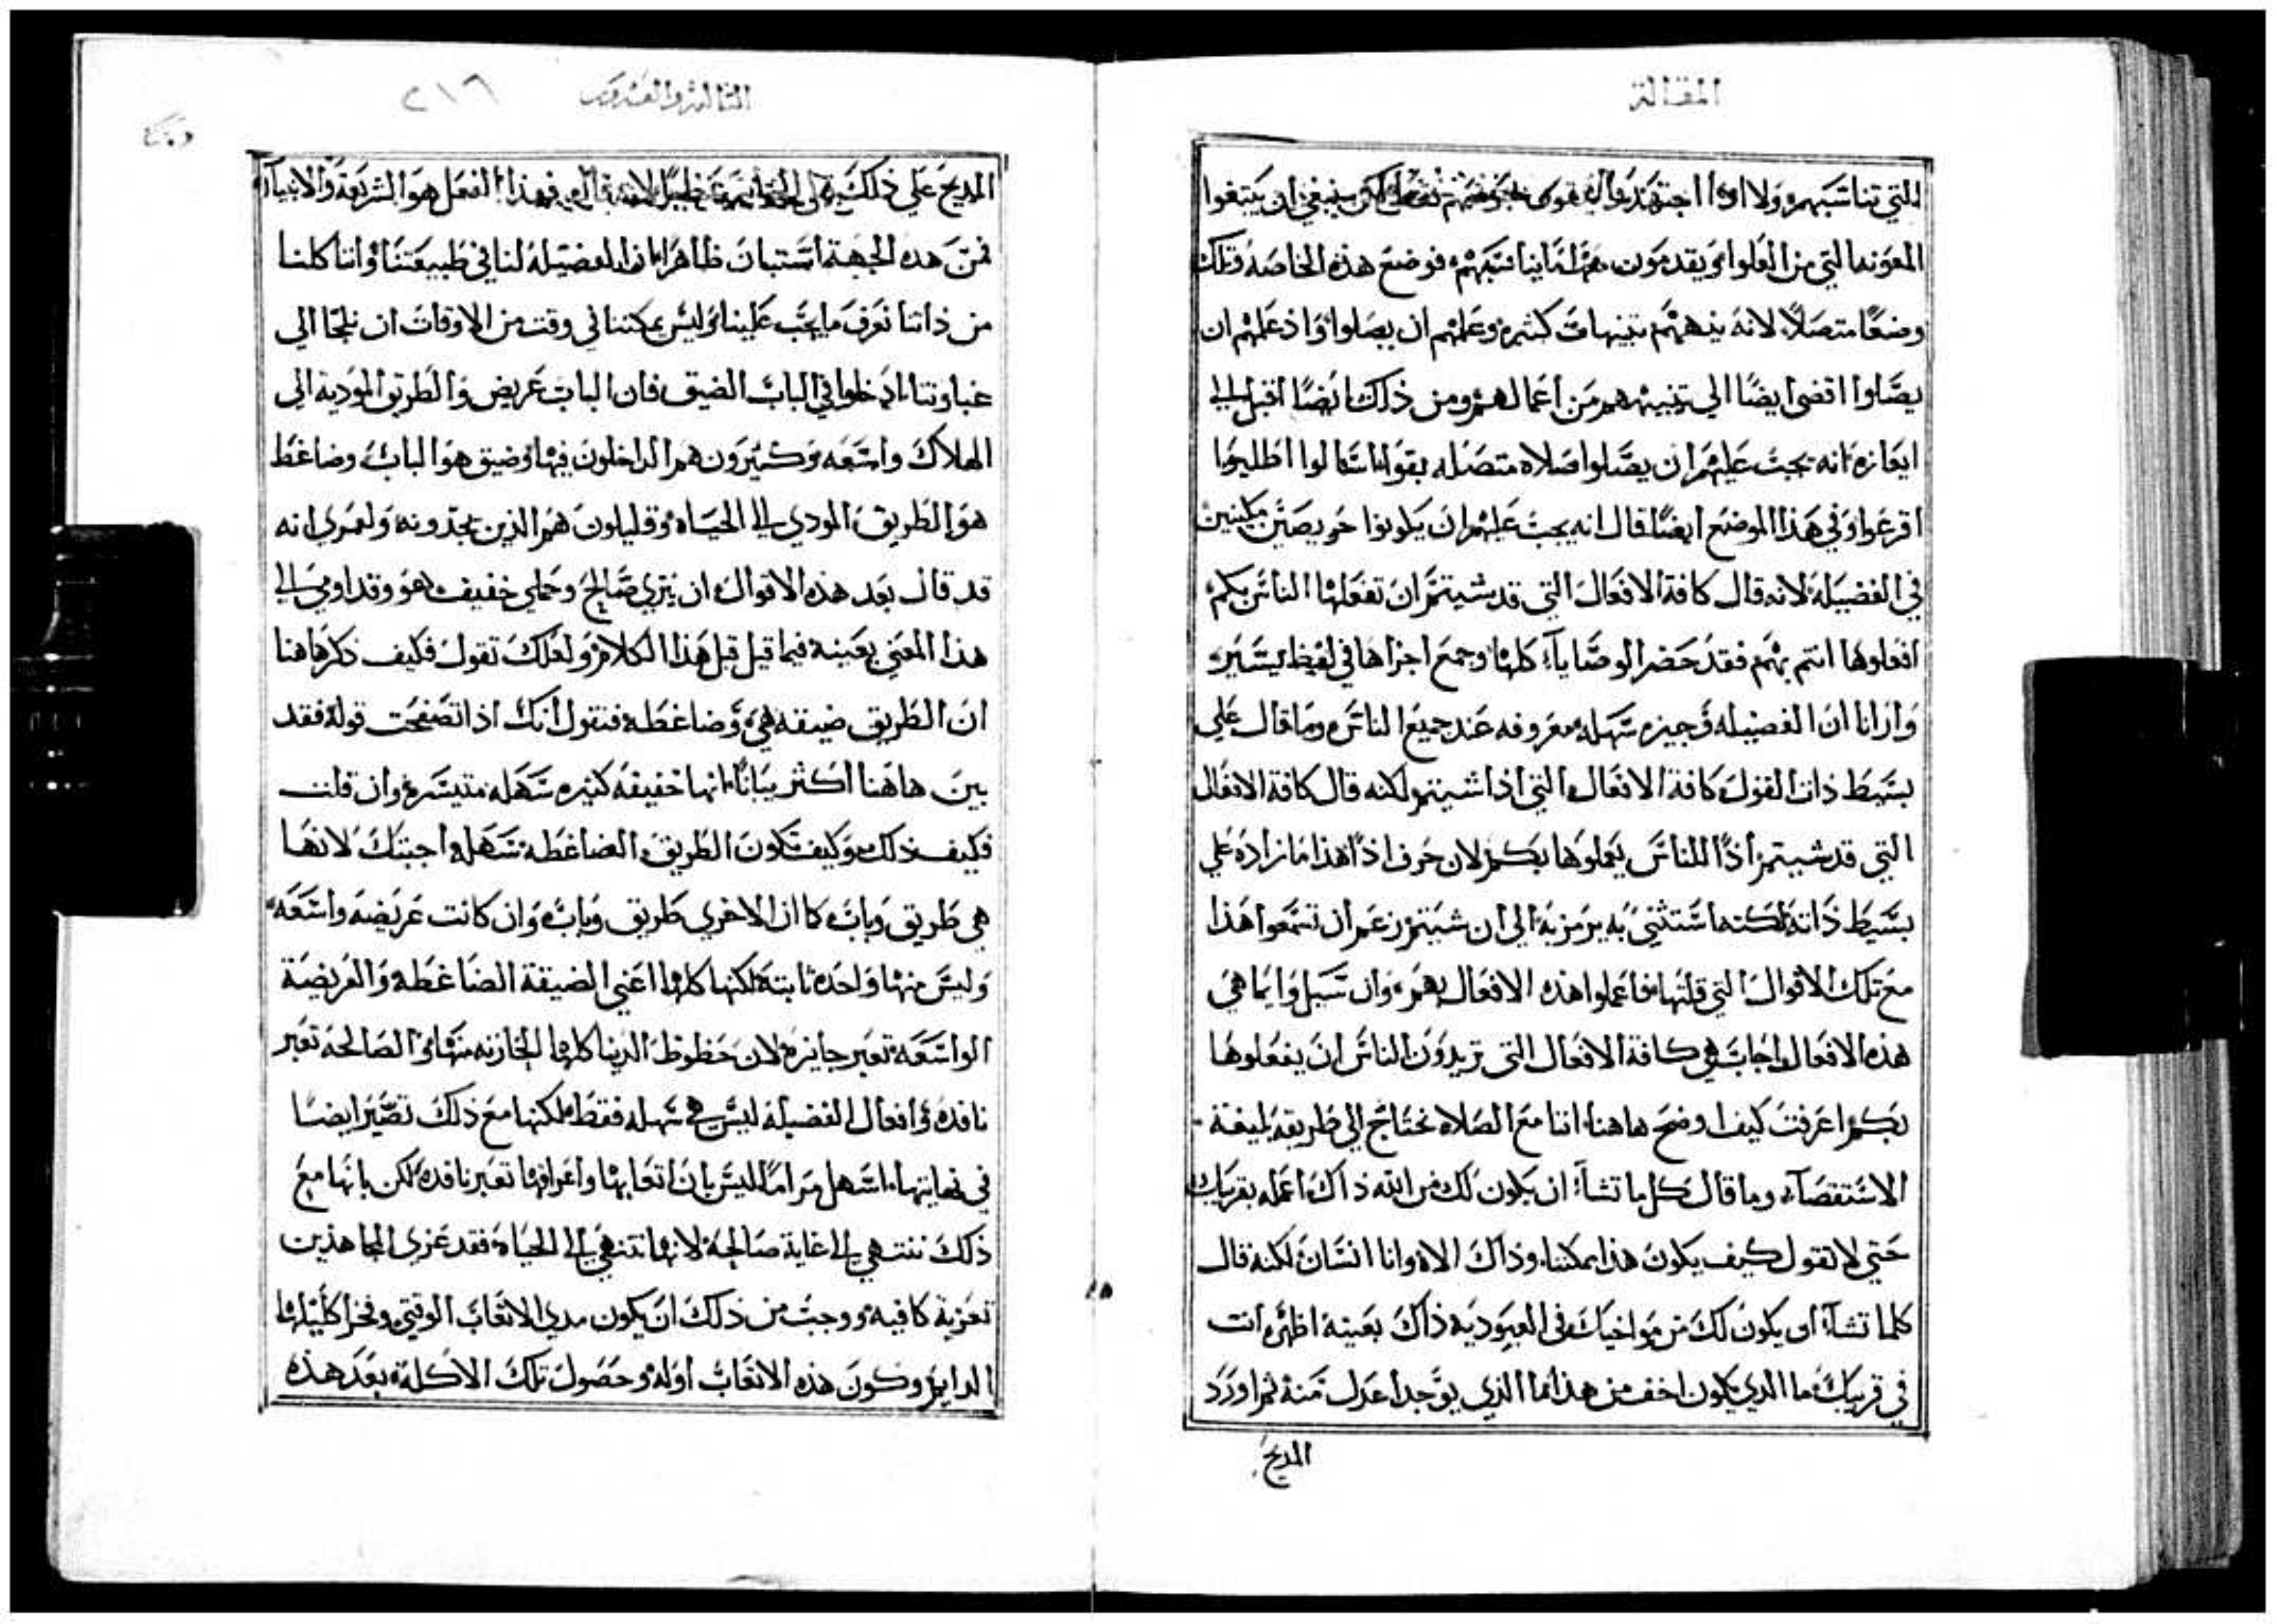 المقالة
التي تناسبهم ولا اذا اجتهدوا لكن ينبغي ان يبتغوا
المعونه التي من العلو ويقدمون مهما يناسبهم فوضع هذه الخاصه وتلك
وضعًا متصلاً لانه ينبههم تنبيهات كثيره وعلمهم ان يصلوا واذ علمهم ان
يصلوا اقضي ايضًا الي تنبيههم من اعمالهم ومن ذلك ايضًا اقبل الي
ايعازه انه يجب عليهم ان يصلوا صلاه متصله بقوله اسالوا اطلبوا
اقرعوا وفي هذا الموضع ايضًا قال انه يجب عليهم ان يكونوا حريصين مكينين
في الفضيله لانه قال كافة الافعال التي قد شيتم ان تفعلها الناس بكم
افعلوها انتم بهم فقد حضر الوصايا كلها وجمع اجزاها في لفظ يسير
وارانا ان الفضيله وجيزه سهله معروفه عند جميع الناس وما قال علي
بسيط ذات القول كافة الافعال التي اذا شيتم لكنه قال كافة الافعال
التي قد شيتم اذًا للناس يعملوها بكم لان حرف اذًا هذا ما زاده علي
بسيط ذاته لكنه استثني به يرمز به الي ان شيتم زعم ان تسمعوا هذا
مع تلك الاقوال التي قلتها فاعملوا هذه الافعال بهم وان سيل وايما هي
هذه الافعال اجاب هي كافة الافعال التي تريدون الناس ان يفعلوها
بكم اعرفت كيف اوضح هاهنا اننا مع الصلاه نحتاج الي طريقه بليغة
الاستقصآء وما قال كل ما تشآ ان يكون لك من الله ذاك اعمله بقريبك
حتي لا تقول كيف يكون هذا يمكننا وذاك الاه وانا انسان لكنه قال
كلما تشآ ان يكون لك من مواخيك في العبوديه ذاك بعينه اظهره انت
في قريبك ما الذي يكون اخف من هذا ما الذي يوجد اعدل منه ثم اورد
المديح
الثالثه والعشرون ٢١٦
المديح علي ذلك فهذا الفعل هو الشريعة والانبيآ
فمن هذه الجهة استبان ظاهرًا ان الفضيله لنا في طبيعتنا واننا كلنا
من ذاتنا نعرف ما يجب علينا وليس يمكننا في وقت من الاوقات ان نلجا الي
غباوتنا ادخلوا في الباب الضيق فان الباب عريض والطريق الموديه الي
الهلاك واسعه وكثيرون هم الداخلون فيها وضيق هو الباب وضاغط
هو الطريق المودي الي الحياه وقليلون هم الذين يجدونه ولعمري انه
قد قال بعد هذه الاقوال ان نيري صالح وحملي خفيف هو وقد اومي الي
هذا المعني بعينه فيما قيل قبل هذا الكلام ولعلك تقول فكيف ذكر هاهنا
ان الطريق ضيقه هي وضاغطه فنقول انك اذا تصفحت قوله فقد
بين هاهنا اكثر بيانًا انها خفيفه كثيره سهله متيسره وان قلت
فكيف ذلك وكيف تكون الطريق الضاغطه سهله اجبتك لانها
هي طريق وباب كما ان الاخري طريق وباب وان كانت عريضه واسعه
وليس منها واحده ثابته لكنها كلها اعني الضيقة الضاغطه والعريضة
الواسعه تعبر جايزه لان حظوظ الدنيا كلها المحازنه منها والصالحه تعبر
نافده وافعال الفضيله ليس هي سهله فقط لكنها مع ذلك تصير ايضًا
في نهايتها اسهل مرامًا ليس بان اتعابها واعراقها تعبر نافده لكن بانها مع
ذلك تنتهي الي غاية صالحه لانها تنتهي الي الحياه فقد عزي المجاهدين
تعزية كافيه ووجب من ذلك ان يكون مدي الاتعاب الوقتي وفخر اكليلها
الدايم وكون هذه الاتعاب اوله وحصول تلك الاكلة بعد هذه